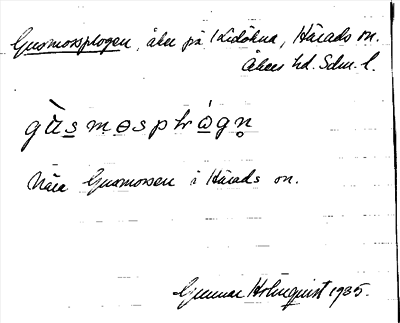 Gusmossplogen, åker på Lidökna, Härads sn.
Åkers hd. Sdm. l.
gùsmɵsplώgn̥
Nära Gusmossen i Härads sn.
Gunnar Holmquist 1935.